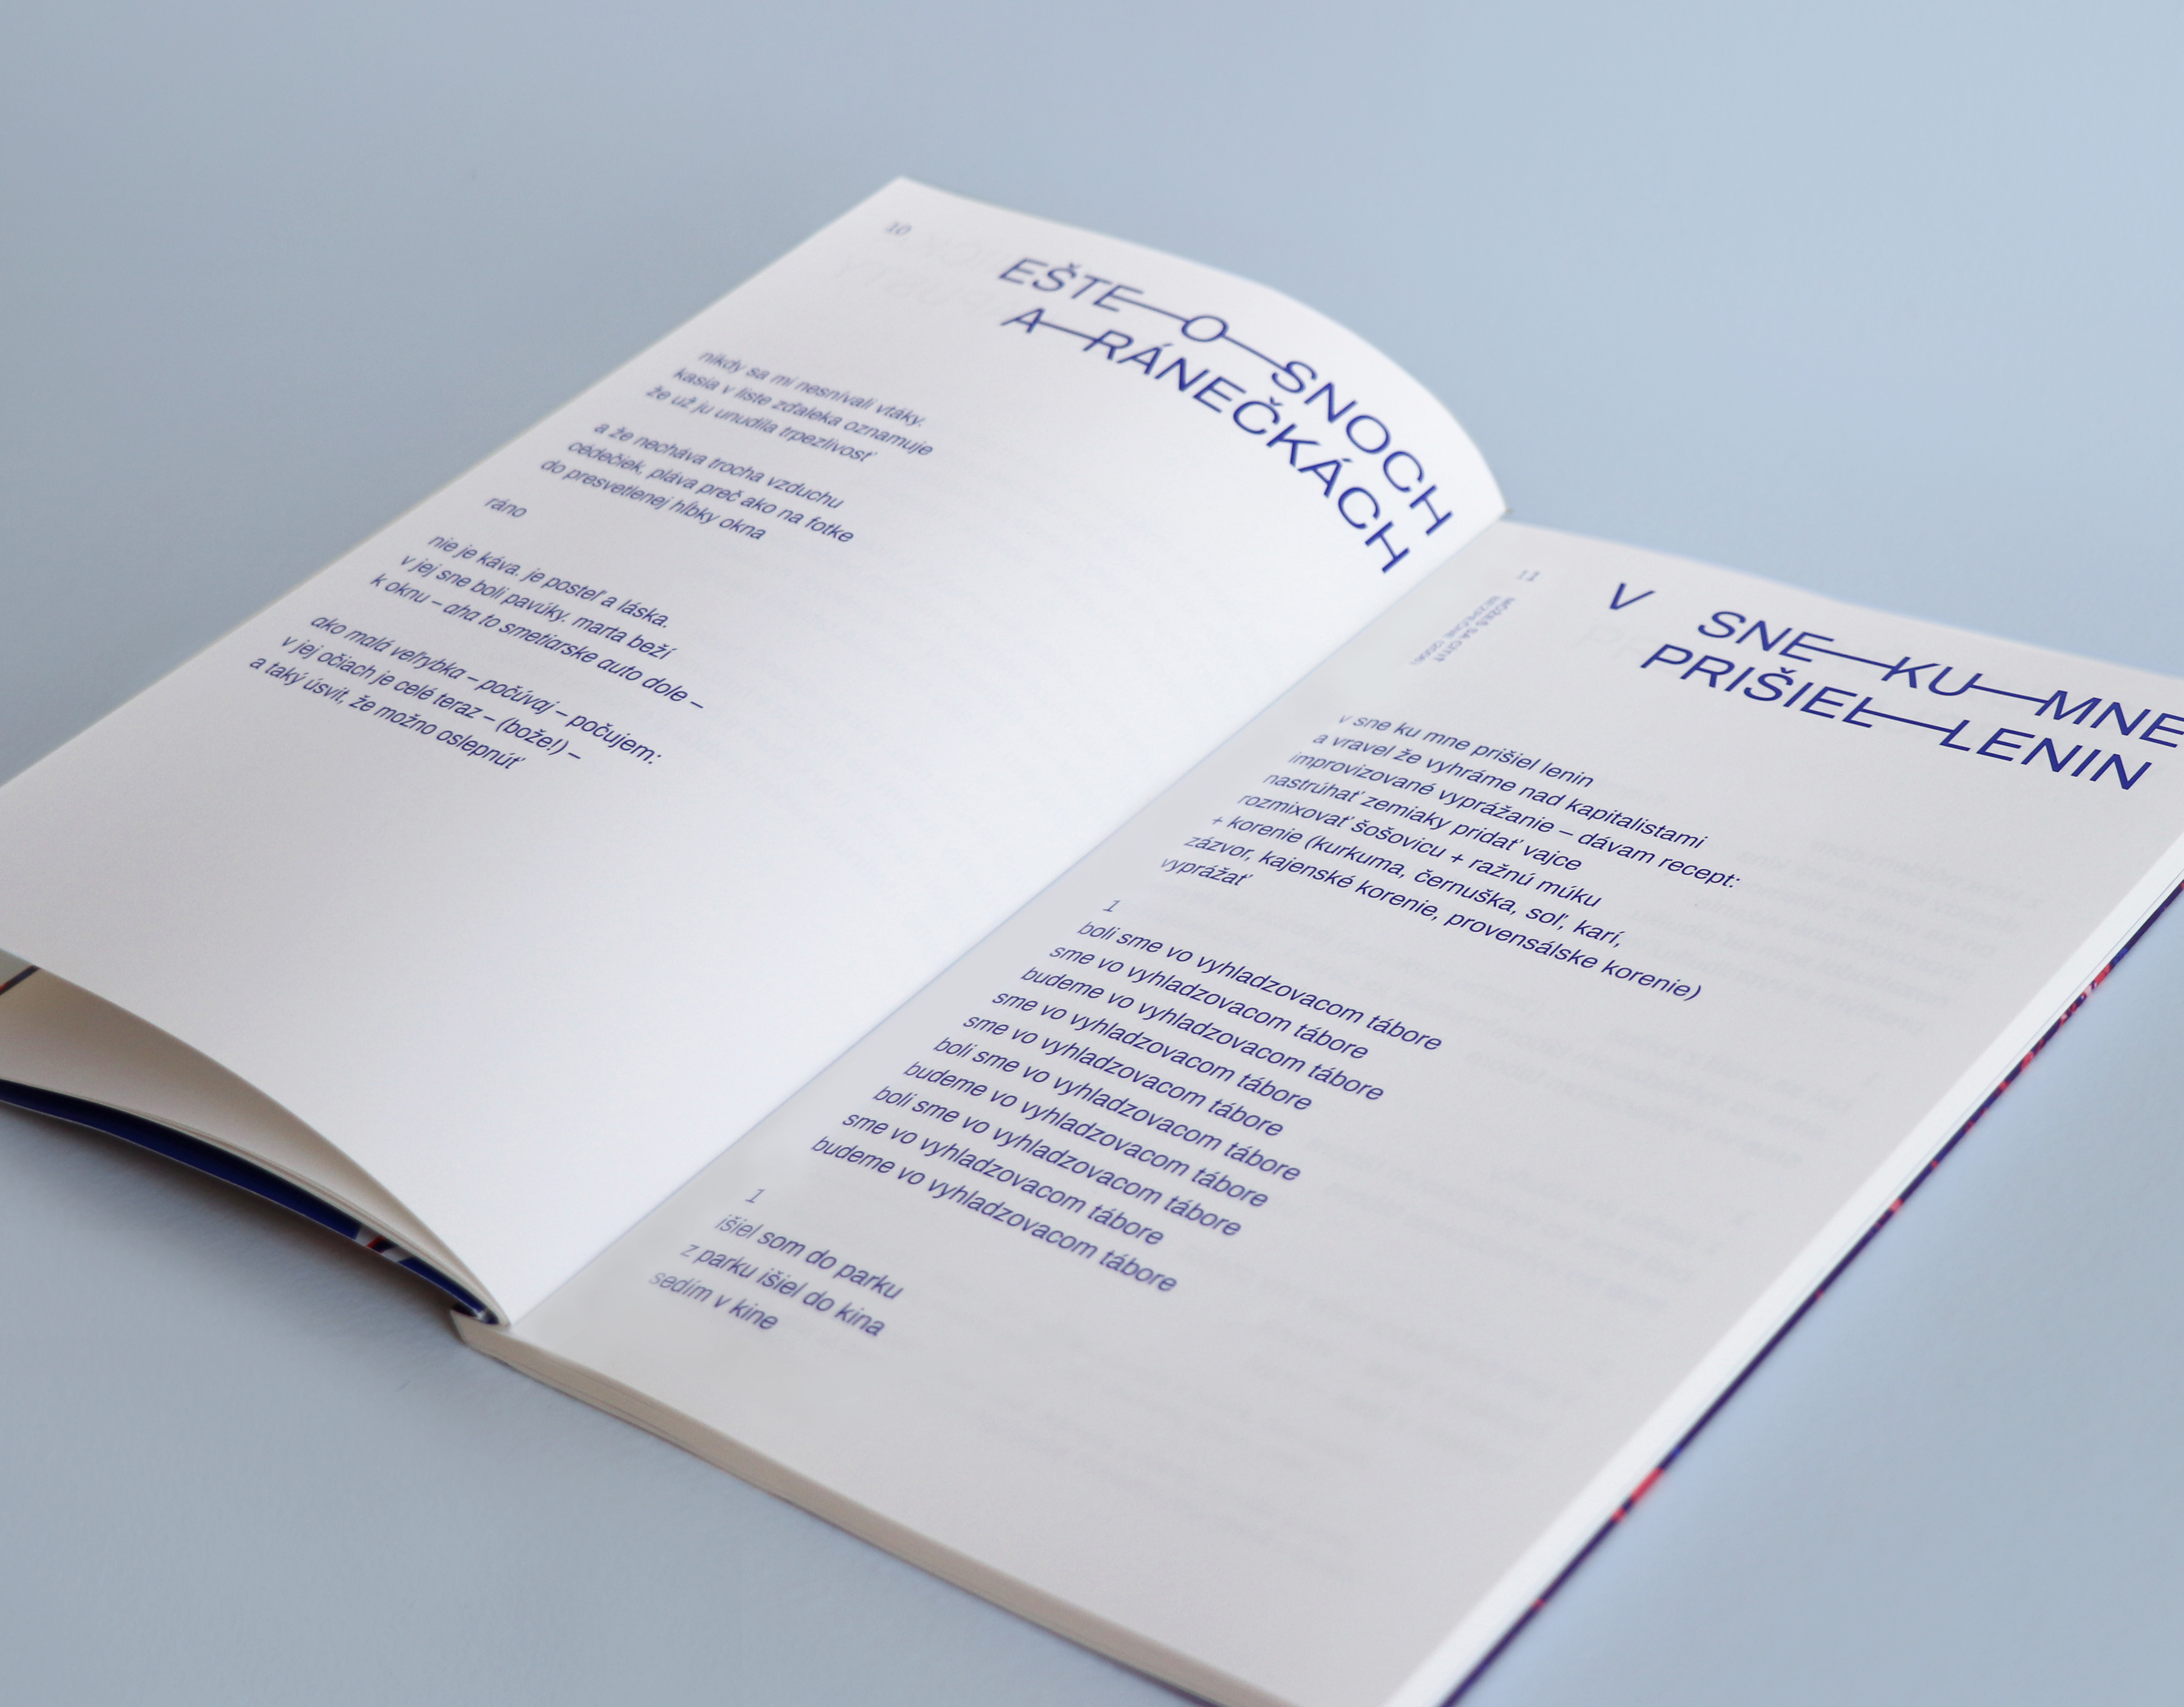 10
EŠTE O SNOCH
A RÁNEČKÁCH
nikdy sa mi nesnívali vtáky.
kasia v liste zďaleka oznamuje
že už ju unudila trpezlivosť
a že necháva trocha vzduchu
cédečiek, pláva preč ako na fotke
do presvetlenej hĺbky okna
ráno
nie je káva. je posteľ a láska.
v jej sne boli pavúky. marta beží
k oknu – aha to smetiarske auto dole –
ako malá veľrybka – počúvaj – počujem:
v jej očiach je celé teraz – (bože!) –
a taký úsvit, že možno oslepnúť
11
MÔŽEŠ SA CÍTIŤ
BEZPEČNE (2006)
V SNE KU MNE
PRIŠIEL LENIN
v sne ku mne prišiel lenin
a vravel že vyhráme nad kapitalistami
improvizované vyprážanie – dávam recept:
nastrúhať zemiaky pridať vajce
rozmixovať šošovicu + ražnú múku
+ korenie (kurkuma, černuška, soľ, karí,
zázvor, kajenské korenie, provensálske korenie)
vyprážať
1
boli sme vo vyhladzovacom tábore
sme vo vyhladzovacom tábore
budeme vo vyhladzovacom tábore
sme vo vyhladzovacom tábore
sme vo vyhladzovacom tábore
boli sme vo vyhladzovacom tábore
budeme vo vyhladzovacom tábore
boli sme vo vyhladzovacom tábore
sme vo vyhladzovacom tábore
budeme vo vyhladzovacom tábore
1
išiel som do parku
z parku išiel do kina
sedím v kine